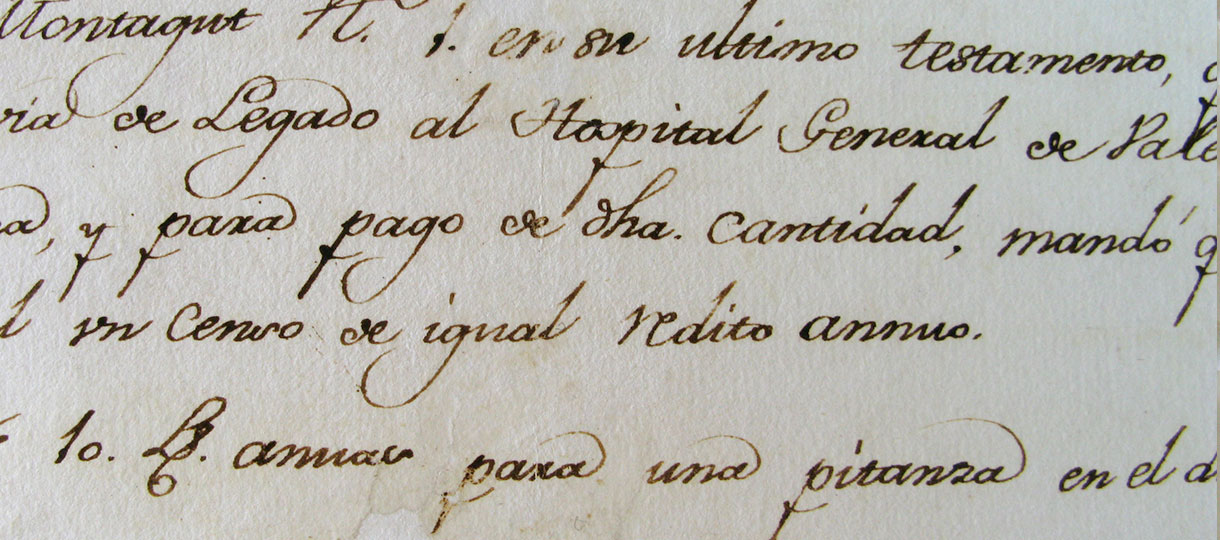 Montagut N. 1. en su ultimo testamento, q
ria de Legado al Hospital General de Vale
a, y para pago de dha. cantidad, mandó q
l vn Censo de igual redito annuo.
10. L. annuas para una pitanza en el d